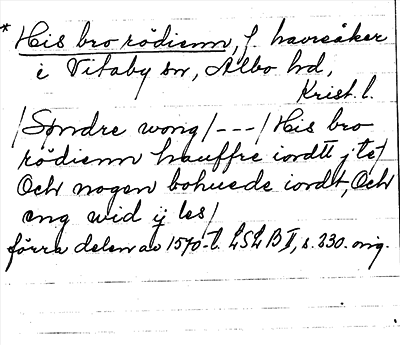 * His bro rödienn, f. havreåker
i Vitaby sn, Albo hd,
Krist. l.
/Søndre wong/ --- / His bro
rödienn hauffre iordtt j te/
Och nogen bohuede iordt, Och
eng wid ij les/
förra delen av 1570-t. LSLB II, s. 230. orig.